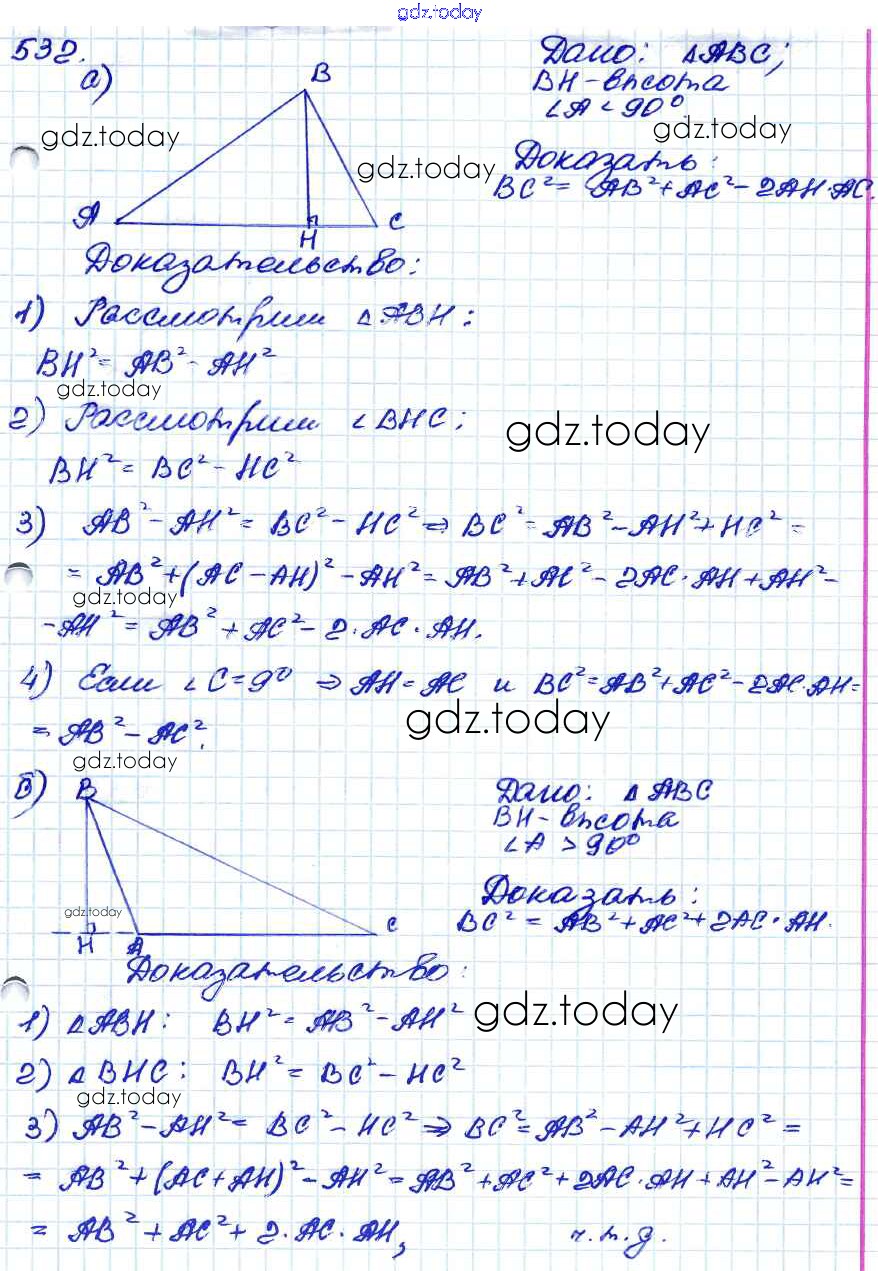 gdz.today
532.
а)
B
A
H
C
Дано: △ABC;
BH - высота
∠A < 90°.
gdz.today
gdz.today
gdz.today
Доказать:
BC² = AB² + AC² - 2AH·AC.
Доказательство:
1) Рассмотрим △ABH:
BH² = AB² - AH²
gdz.today
2) Рассмотрим ∠BHC:
gdz.today
BH² = BC² - HC²
3) AB² - AH² = BC² - HC² ⇒ BC² = AB² - AH² + HC² =
= AB² + (AC - AH)² - AH² = AB² + AC² - 2AC·AH + AH² -
gdz.today
- AH² = AB² + AC² - 2·AC·AH.
4) Если ∠C = 9° ⇒ AH = AC и BC² = AB² + AC² - 2AC·AH =
gdz.today
= AB² - AC².
gdz.today
б)
B
H
A
C
gdz.today
Дано: △ABC
BH - высота
∠A > 90°
Доказать:
BC² = AB² + AC² + 2AC·AH.
Доказательство:
1) △ABH: BH² = AB² - AH²
gdz.today
2) △BHC: BH² = BC² - HC²
gdz.today
3) AB² - AH² = BC² - HC² ⇒ BC² = AB² - AH² + HC² =
= AB² + (AC + AH)² - AH² = AB² + AC² + 2AC·AH + AH² - AH² =
= AB² + AC² + 2·AC·AH, ч.т.д.